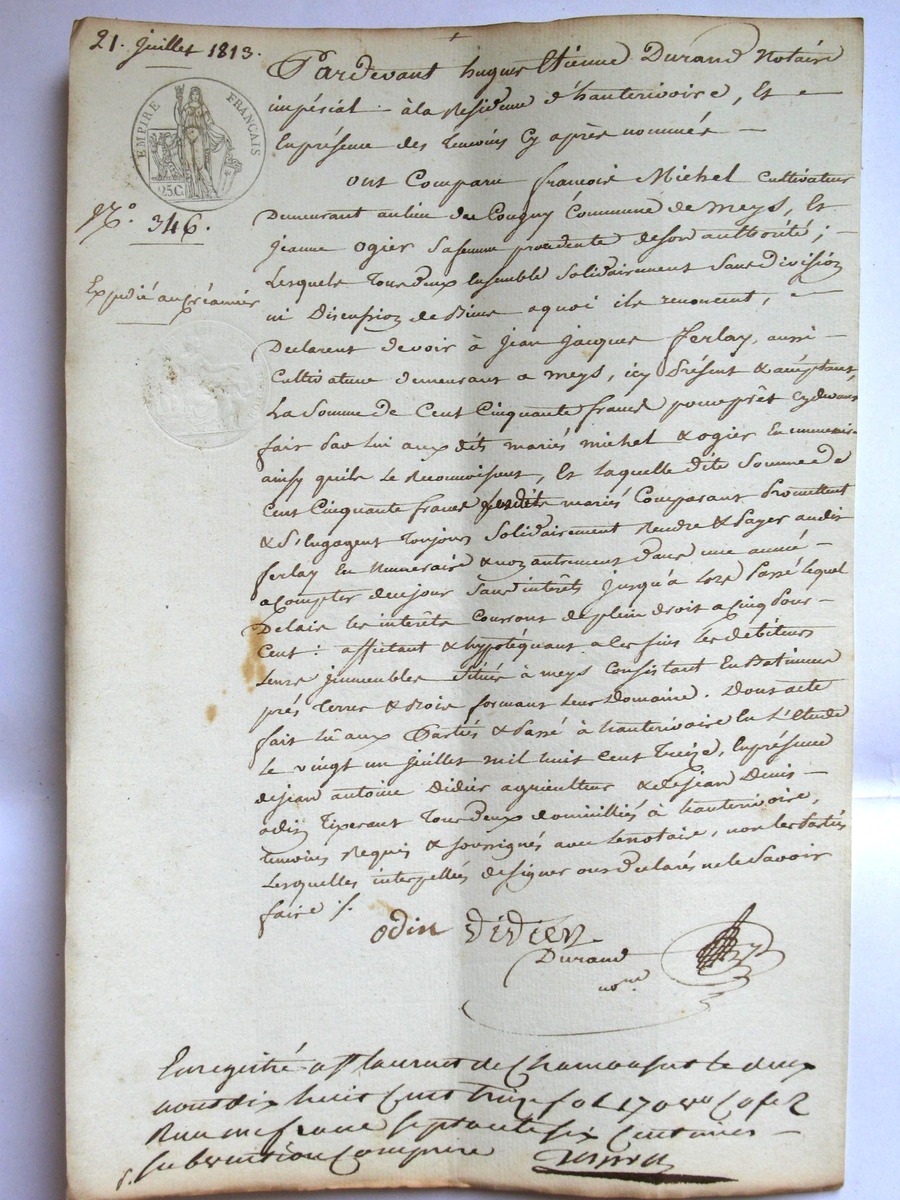 21. Juillet 1813.
EMPIRE FRANÇAIS
25 C.
N.o 346.
Expédié au créancier
Pardevant hugues Etienne Durand Notaire
impérial à la Residence d'hauterivoire, Et
En présence des temoins Cy après nommés
ont Comparu francois Michel Cultivateur
Demeurant au lieu du Cougny Commune de meys, Et
jeanne ogier sa femme procedente de son authorité;
Lesquels Tous deux Ensemble solidairement sans division
ni Discussion de Biens aquoi ils renoncent,
Declarent devoir à jean jacques ferlay, aussi
Cultivateur demeurant a meys, icy présent & acceptant,
La Somme de Cent Cinquante francs pour prêt cydevant
fait par lui aux dits mariés michel & ogier En numeraire
ainsy quils le reconnoissent, Et laquelle dite Somme de
Cent Cinquante francs lesdits mariés Comparant Promettent
& S'Engagent Toujours Solidairement Rendre & Payer audit
ferlay En Numeraire & non autrement dans une année
a Compter de ce jour sans intérêts jusqu'à lors Passé lequel
Delais les intérêts Courront de plein droit a Cinq Pour
Cent: affectant & hyppotéquant a ces fins les débiteurs
Leurs jmmeubles Situés à meys Consistant En Batiments
prés Terres & Bois formant leur Domaine. Dont acte
fait lû aux Parties & Passé à hauterivoire En l'Etude
le vingt un juillet mil huit Cent Treize, En présence
de jean antoine Didier agriculteur & de jean Denis
odin Tixerant Tous deux domiciliés à hauterivoire,
temoins Requis & soussignés avec le notaire, non les Parties
Lesquelles interpellés de signer ont Declarés ne le Savoir
faire ./.
odin Didier
Durand
no.re
Enregistré a St laurent de Chamousset le deux
aout dix huit Cent treize fol 170 vo Case 2
Reçu un franc septante six Centimes
subvention Comprise